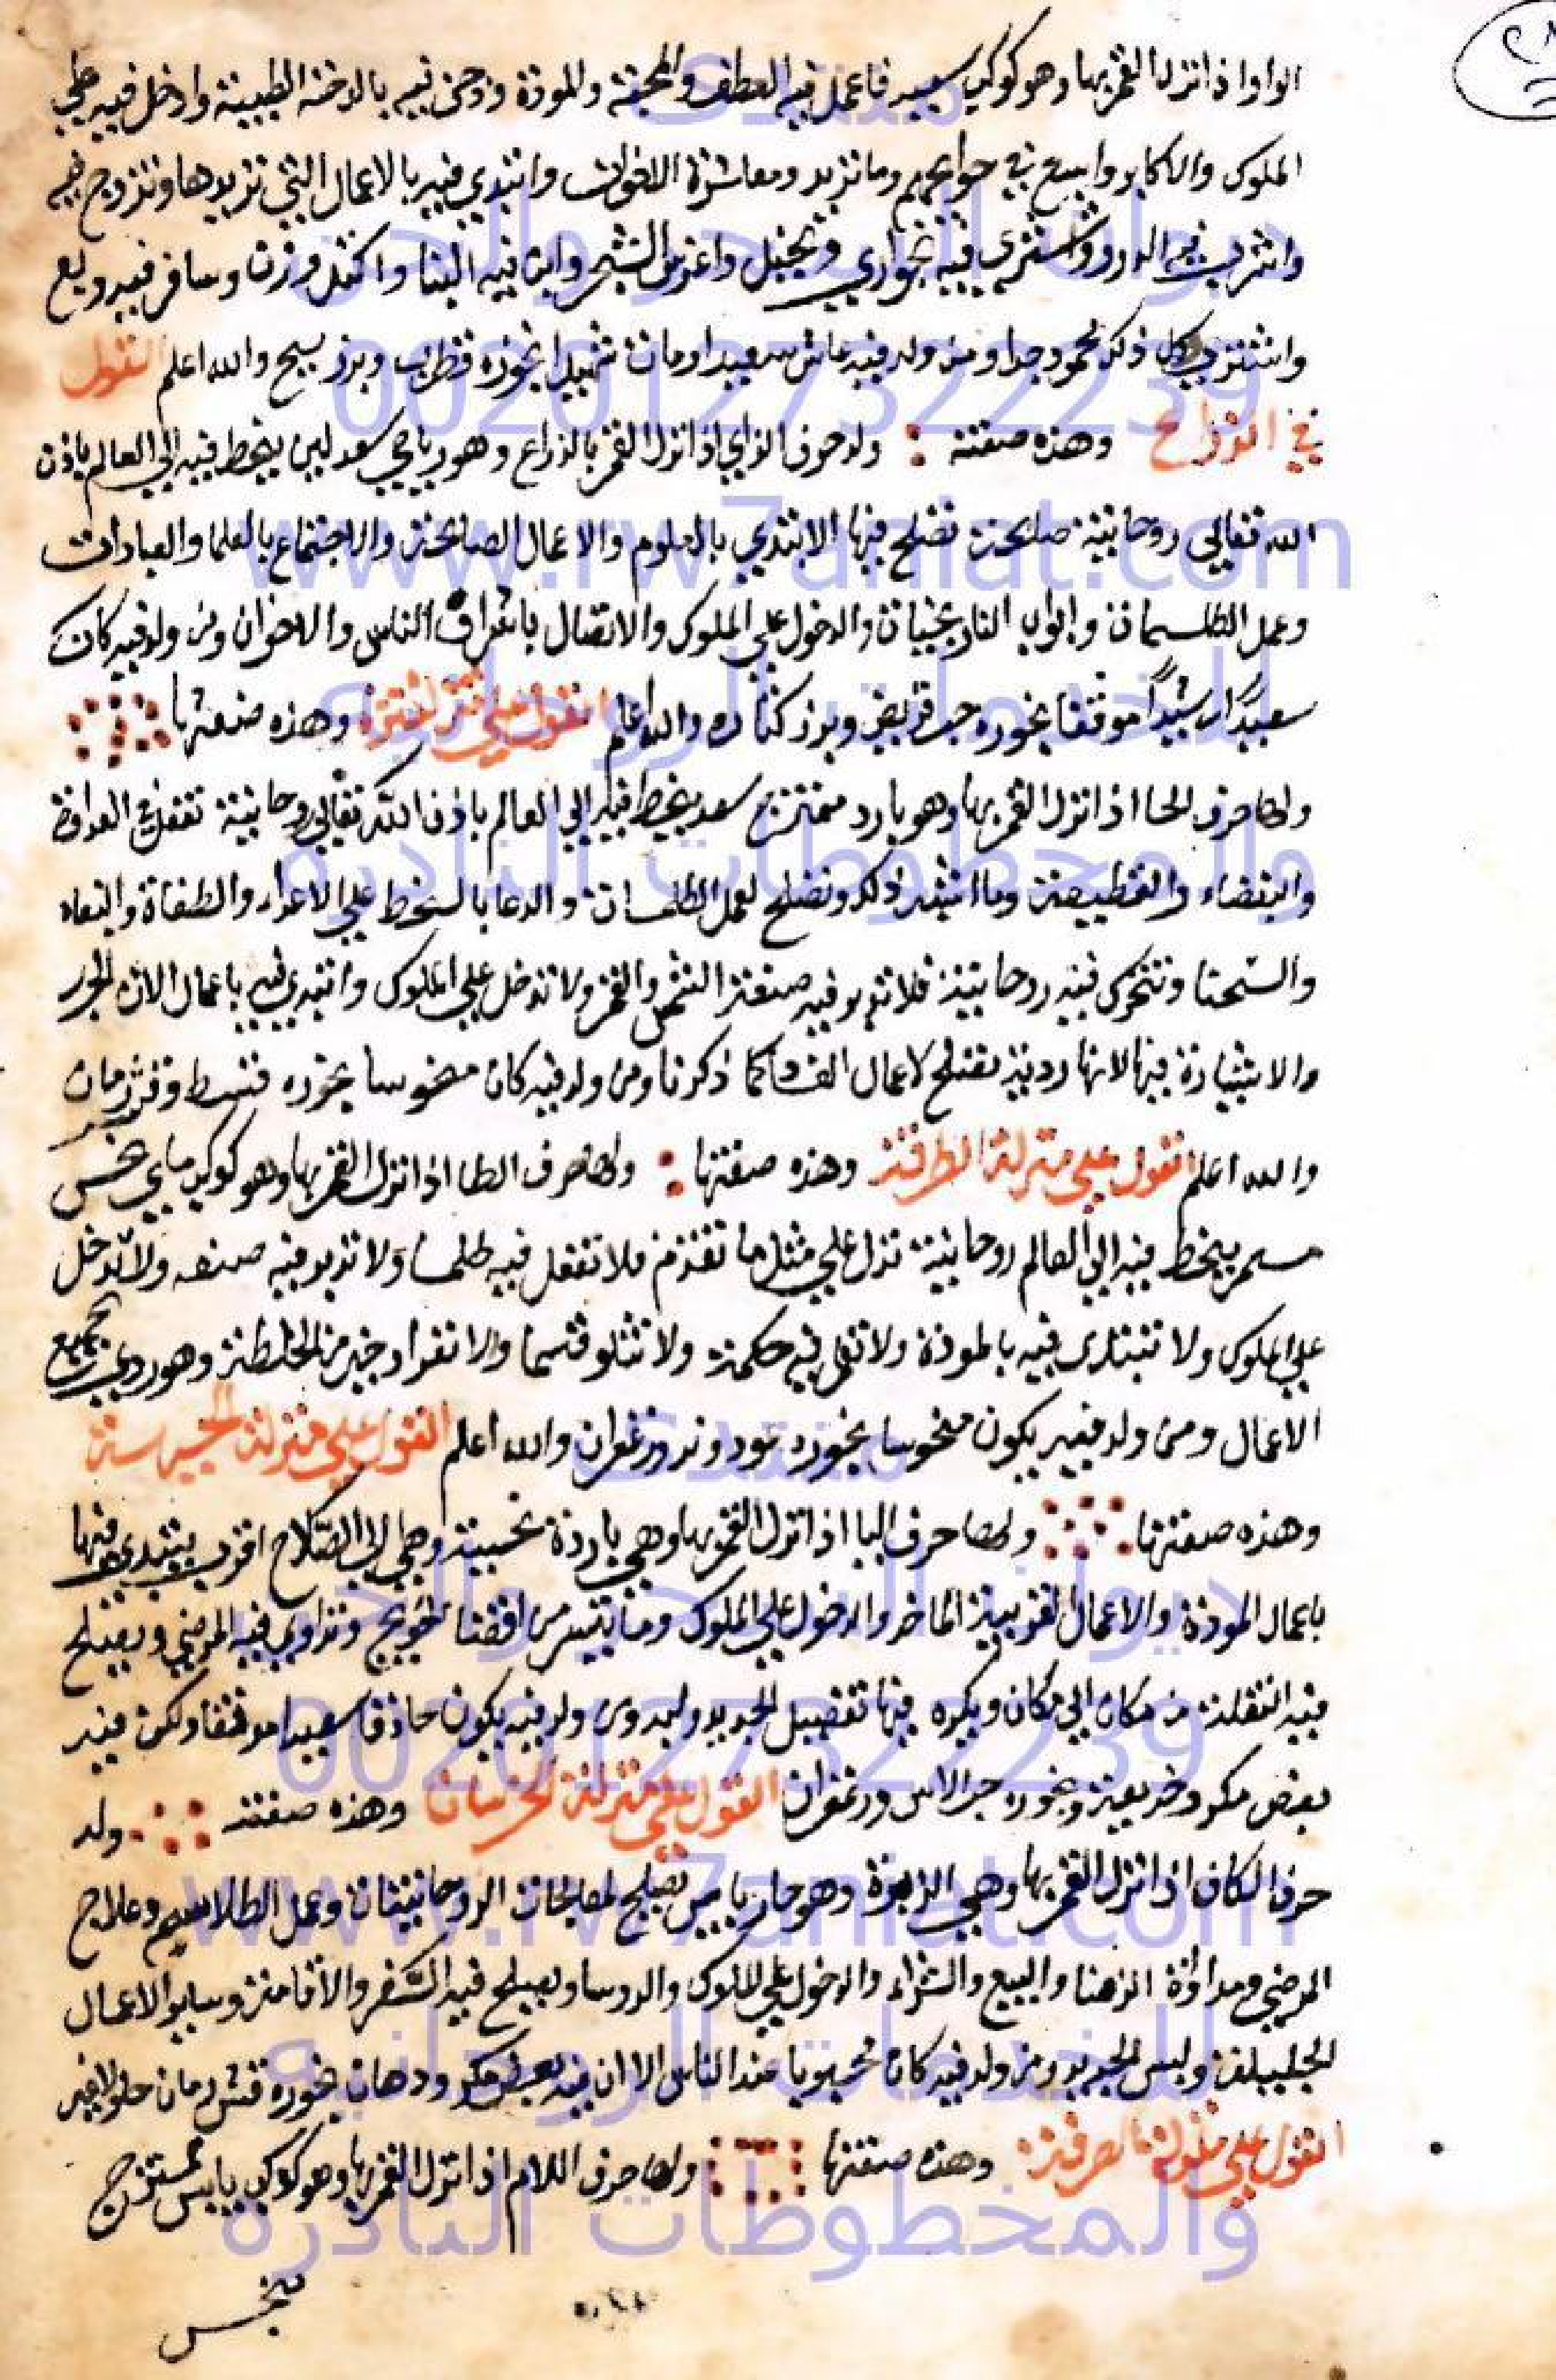 الواو اذا نزل القمر بها وهو كوكب سعيد فاعمل فيه العطف والمحبة والمودة ودخن فيه بالدخنة الطيبة وادخل فيه علي
الملوك والاكابر واسع في حوايجهم وما تريد ومعاشرة الاخوان وابتدي فيه بالاعمال التي تريدها وتزوج فيه
واشرب فيه الدور واشتري فيه الجواري والخيل واغرس الشجر وابن فيه البنا واكتل وزن وسافر فيه وبع
واشتري كل ذلك محمود جدا ومن ولد فيه عاش سعيدا ومات شهيدا بخوره قطرب وبزر سيح والله اعلم القول
في الذراع وهذه صفته وله حرف الزاي اذا نزل القمر بالذراع وهو رياحي سعد لين ينحط فيه الي العالم باذن
الله تعالي روحانية صالحة تصلح فيها الابتدي بالعلوم والاعمال الصالحة والاجتماع بالعلما والعبادات
وعمل الطلسمات وابواب النارنجيات والدخول علي الملوك والاتصال باشراف الناس والاخوان ومن ولد فيه كان
سعيدًا رشيدًا موفقا بخوره حب قريض وبزر كتان والله اعلم القول علي النثرة وهذه صفتها
ولها حرف الحا اذا نزل القمر بها وهو بارد ممتزج سعد ينحط فيه الي العالم باذن الله تعالي روحانية تفعل في العداوة
والبغضاء والقطيعة وما اشبه ذلك وتصلح لعمل الطلسمات والدعا بالسخط علي الاعداء والطغاة والبغاه
والسحتا وتتحرك فيه روحانية فلا تدبر فيه صنعة الشمس والقمر ولا تدخل علي الملوك وابتدي فيه باعمال الات الحرب
والاشارة فيها لانها ردية تصلح لاعمال الفساد كما ذكرنا ومن ولد فيه كان منحوسا بخوره قسط وقشر رمان
والله اعلم القول علي منزلة الطرفة وهذه صفتها ولها حرف الطا اذا نزل القمر بها وهو كوكب مايي نحس
ينحط فيه الي العالم روحانية تدل علي مثل ما تقدم فلا تفعل فيه طلسما ولا تدبر فيه صنعه ولا تدخل
علي الملوك ولا تبتدي فيه بالمودة ولا تفعل فيه حكمة ولا تتلو قسما والانفراد خير من الخلطة وهو ردي لجميع
الاعمال ومن ولد فيه يكون منحوسا بخوره عود وند وزعفران والله اعلم القول علي منزلة الجبهة
وهذه صفتها ولها حرف اليا اذا نزل القمر بها وهي باردة نحسية وهي الي الصلاح اقرب يبتدي فيها
باعمال المودة والاعمال القريبة الماخذ والدخول علي الملوك وما يتيسر من اقضا الحوايج وتداوي فيه المرضي ويصلح
فيه النقلة من مكان الي مكان ويكره فيها تفصيل الجديد ولبسه ومن ولد فيه يكون حاذقا سعيدا موفقا ولكن فيه
بعض مكر وخديعة وبخوره حب الاس وزعفران القول علي منزلة الخرسان وهذه صفته وله
حرف الكاف اذا نزل القمر بها وهي الزبرة وهو حار يابس تصلح لمعالجات الروحانيات وعمل الطلاسم وعلاج
المرضي ومداواة الزمنا والبيع والشراء والدخول علي الملوك والروسا ويصلح فيه السفر والاقامة وساير الاعمال
الجليلة ولبس الجديد ومن ولد فيه كان محبوبا عند الناس الا ان فيه بعض مكر ودهان بخوره قشر رمان حلو لا غير
القول علي منزلة الصرفة وهذه صفتها ولها حرف اللام اذا نزل القمر بها وهو كوكب يابس ممتزج
بنحس
منتدى
ديوان السحر والجن
00201273222239
www.rw7aniat.com
للخدمات الروحانيه
والمخطوطات النادره
منتدى
ديوان السحر والجن
00201273222239
www.rw7aniat.com
للخدمات الروحانيه
والمخطوطات النادره